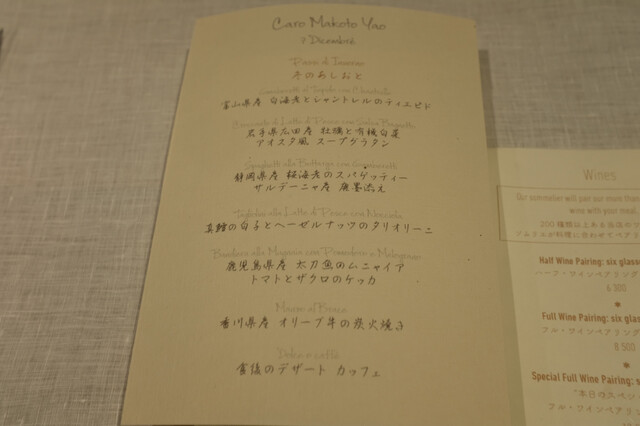 Caro Makoto Yao
7 Dicembre
冬のあしおと
富山県産 白海老とシャントレルのティエピド
岩手県広田産 牡蠣と有機白菜
アオスタ風 スープグラタン
Spaghetti alla Bottarga con
静岡県産 桜海老のスパゲッティー
サルデーニャ産 唐墨添え
Tagliolini alla Latte di Pesce con Nocciola
真鱈の白子とヘーゼルナッツのタリオリーニ
con Pomodoro e Melograno
鹿児島県産 太刀魚のムニャイア
トマトとザクロのケッカ
Manzo al Brace
香川県産 オリーブ牛の炭火焼き
Dolce e caffè
食後のデザート カッフェ
Wines
Our sommelier will pair our more than
wine with your meal
200種類以上ある当店の
ソムリエが料理に合わせてペアリ
Half Wine Pairing: six glass
ハーフ・ワインペアリング
6 300
Full Wine Pairing: six gla
フル・ワインペアリング
8 500
Special Full Wine Pairing: si
"本日のスペシ
フル・ワインペ